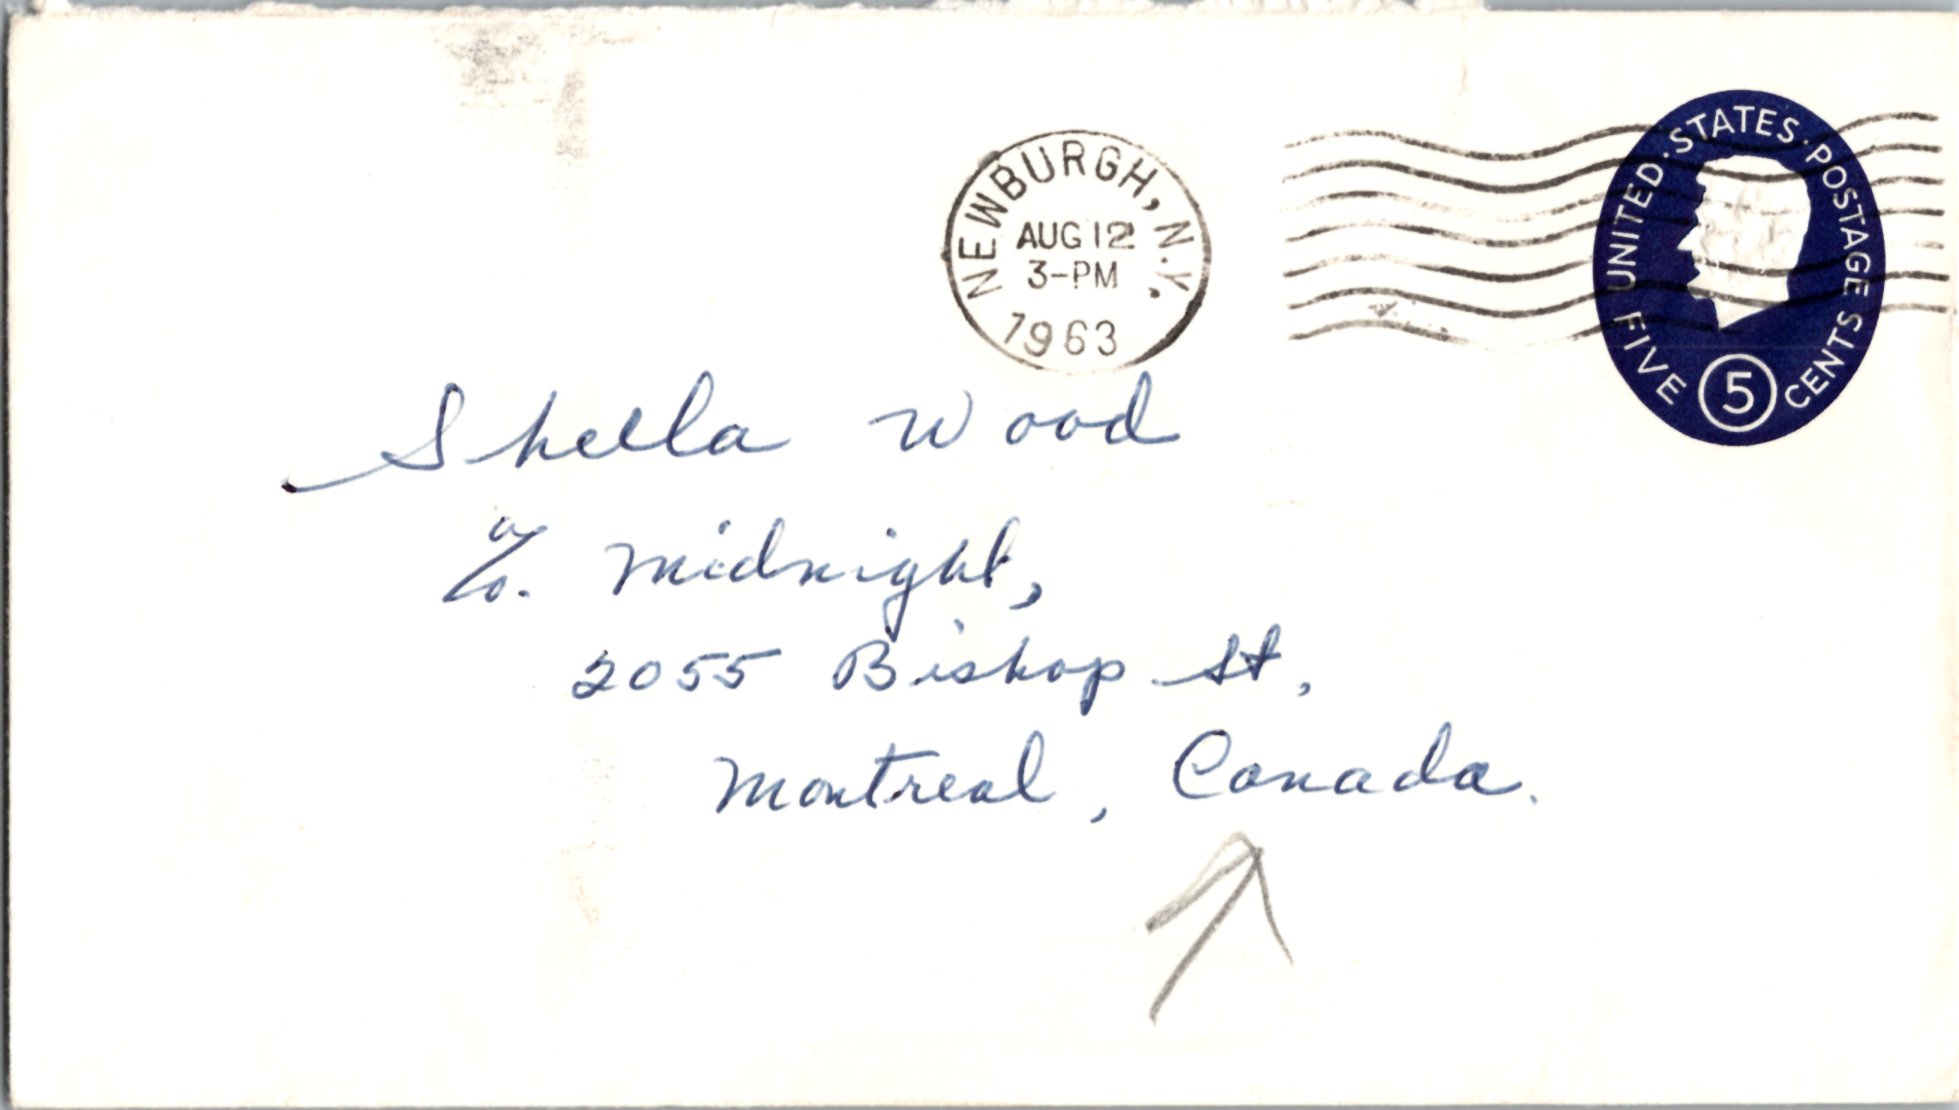 NEWBURGH, N.Y.
AUG 12
3-PM
1963
UNITED · STATES · POSTAGE
FIVE 5 CENTS
Sheila Wood
c/o. Midnight,
2055 Bishop St,
Montreal, Canada.